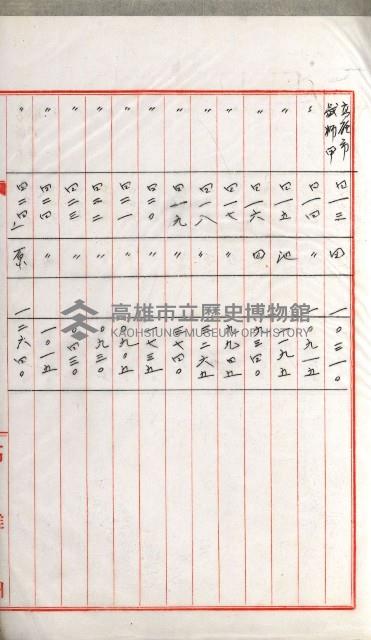 高雄市 戲獅甲 四一三 田 一〇三一〇
〃 四一四 〃
〃 四一五 池 一九五
〃 四一六 田 九三四〇
〃 四一七 〃 九九四五
〃 四一八 〃 二六五
〃 四一九 〃 四〇
〃 四二〇 〃 七三五
〃 四二一 〃 〇九〇五
〃 四二二 〃 〇九三〇
〃 四二三 〃 〇四三〇
〃 四二四 〃 一〇一五
〃 四二四ノ一 原 一二六四〇
高雄市立歷史博物館
KAOHSIUNG MUSEUM OF HISTORY